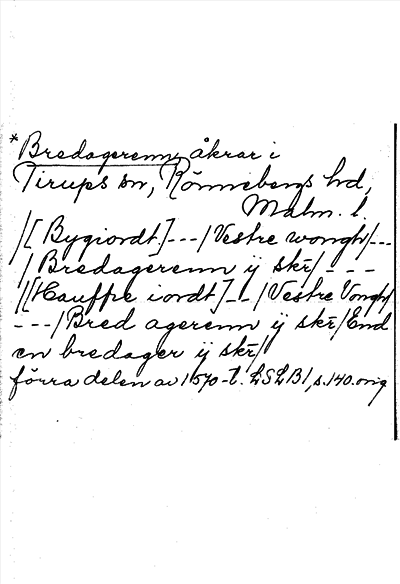 *Bredagerenn, åkrar i
Tirups sn, Rönnebergs hd,
Malm. l.
/[Bygiordt]---/Vestre wongh/---
/Bredagerenn ij skr/----
/[Hauffre iordt]--/Vestre Vongh/
---/Bred agerenn ij skr/End
en bredager ij skr/
förra delen av 1570-t. LSLB1, s. 140. orig